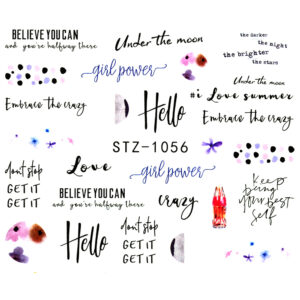 BELIEVE YOU CAN
and you're halfway there
Under the moon
the darker
the night
the brighter
the stars
girl power
Under the moon
#i Love summer
Embrace the crazy
Hello
Embrace the crazy
STZ-1056
dont stop
GET IT
GET IT
Love
girl power
BELIEVE YOU CAN
and you're halfway there
crazy
Keep
being
your best
self
Hello
dont stop
GET IT
GET IT